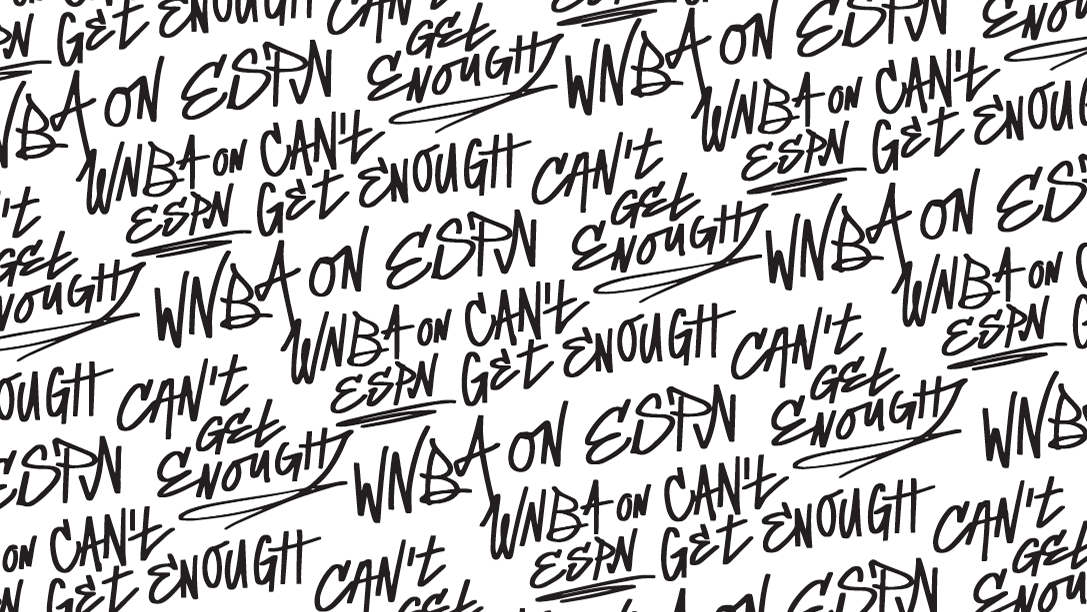 GET ENOUGH CAN'T
GET
ENOUGH WNBA ON ESPN
WNBA ON ESPN
WNBA ON CAN'T
ESPN GET ENOUGH
WNBA ON CAN'T
ESPN GET ENOUGH
CAN'T
GET
ENOUGH
WNBA ON
GET
WNBA ON ESPN
WNBA ON
ESPN
WNBA ON CAN'T
ESPN GET ENOUGH
CAN'T
GET
ENOUGH
CAN'T
GET
ENOUGH
WNBA ON ESPN
ESPN
WNBA ON CAN'T
ESPN GET ENOUGH
CAN'T
GET
ON CAN'T
GET ENOUGH
CAN'T
GET
ESPN